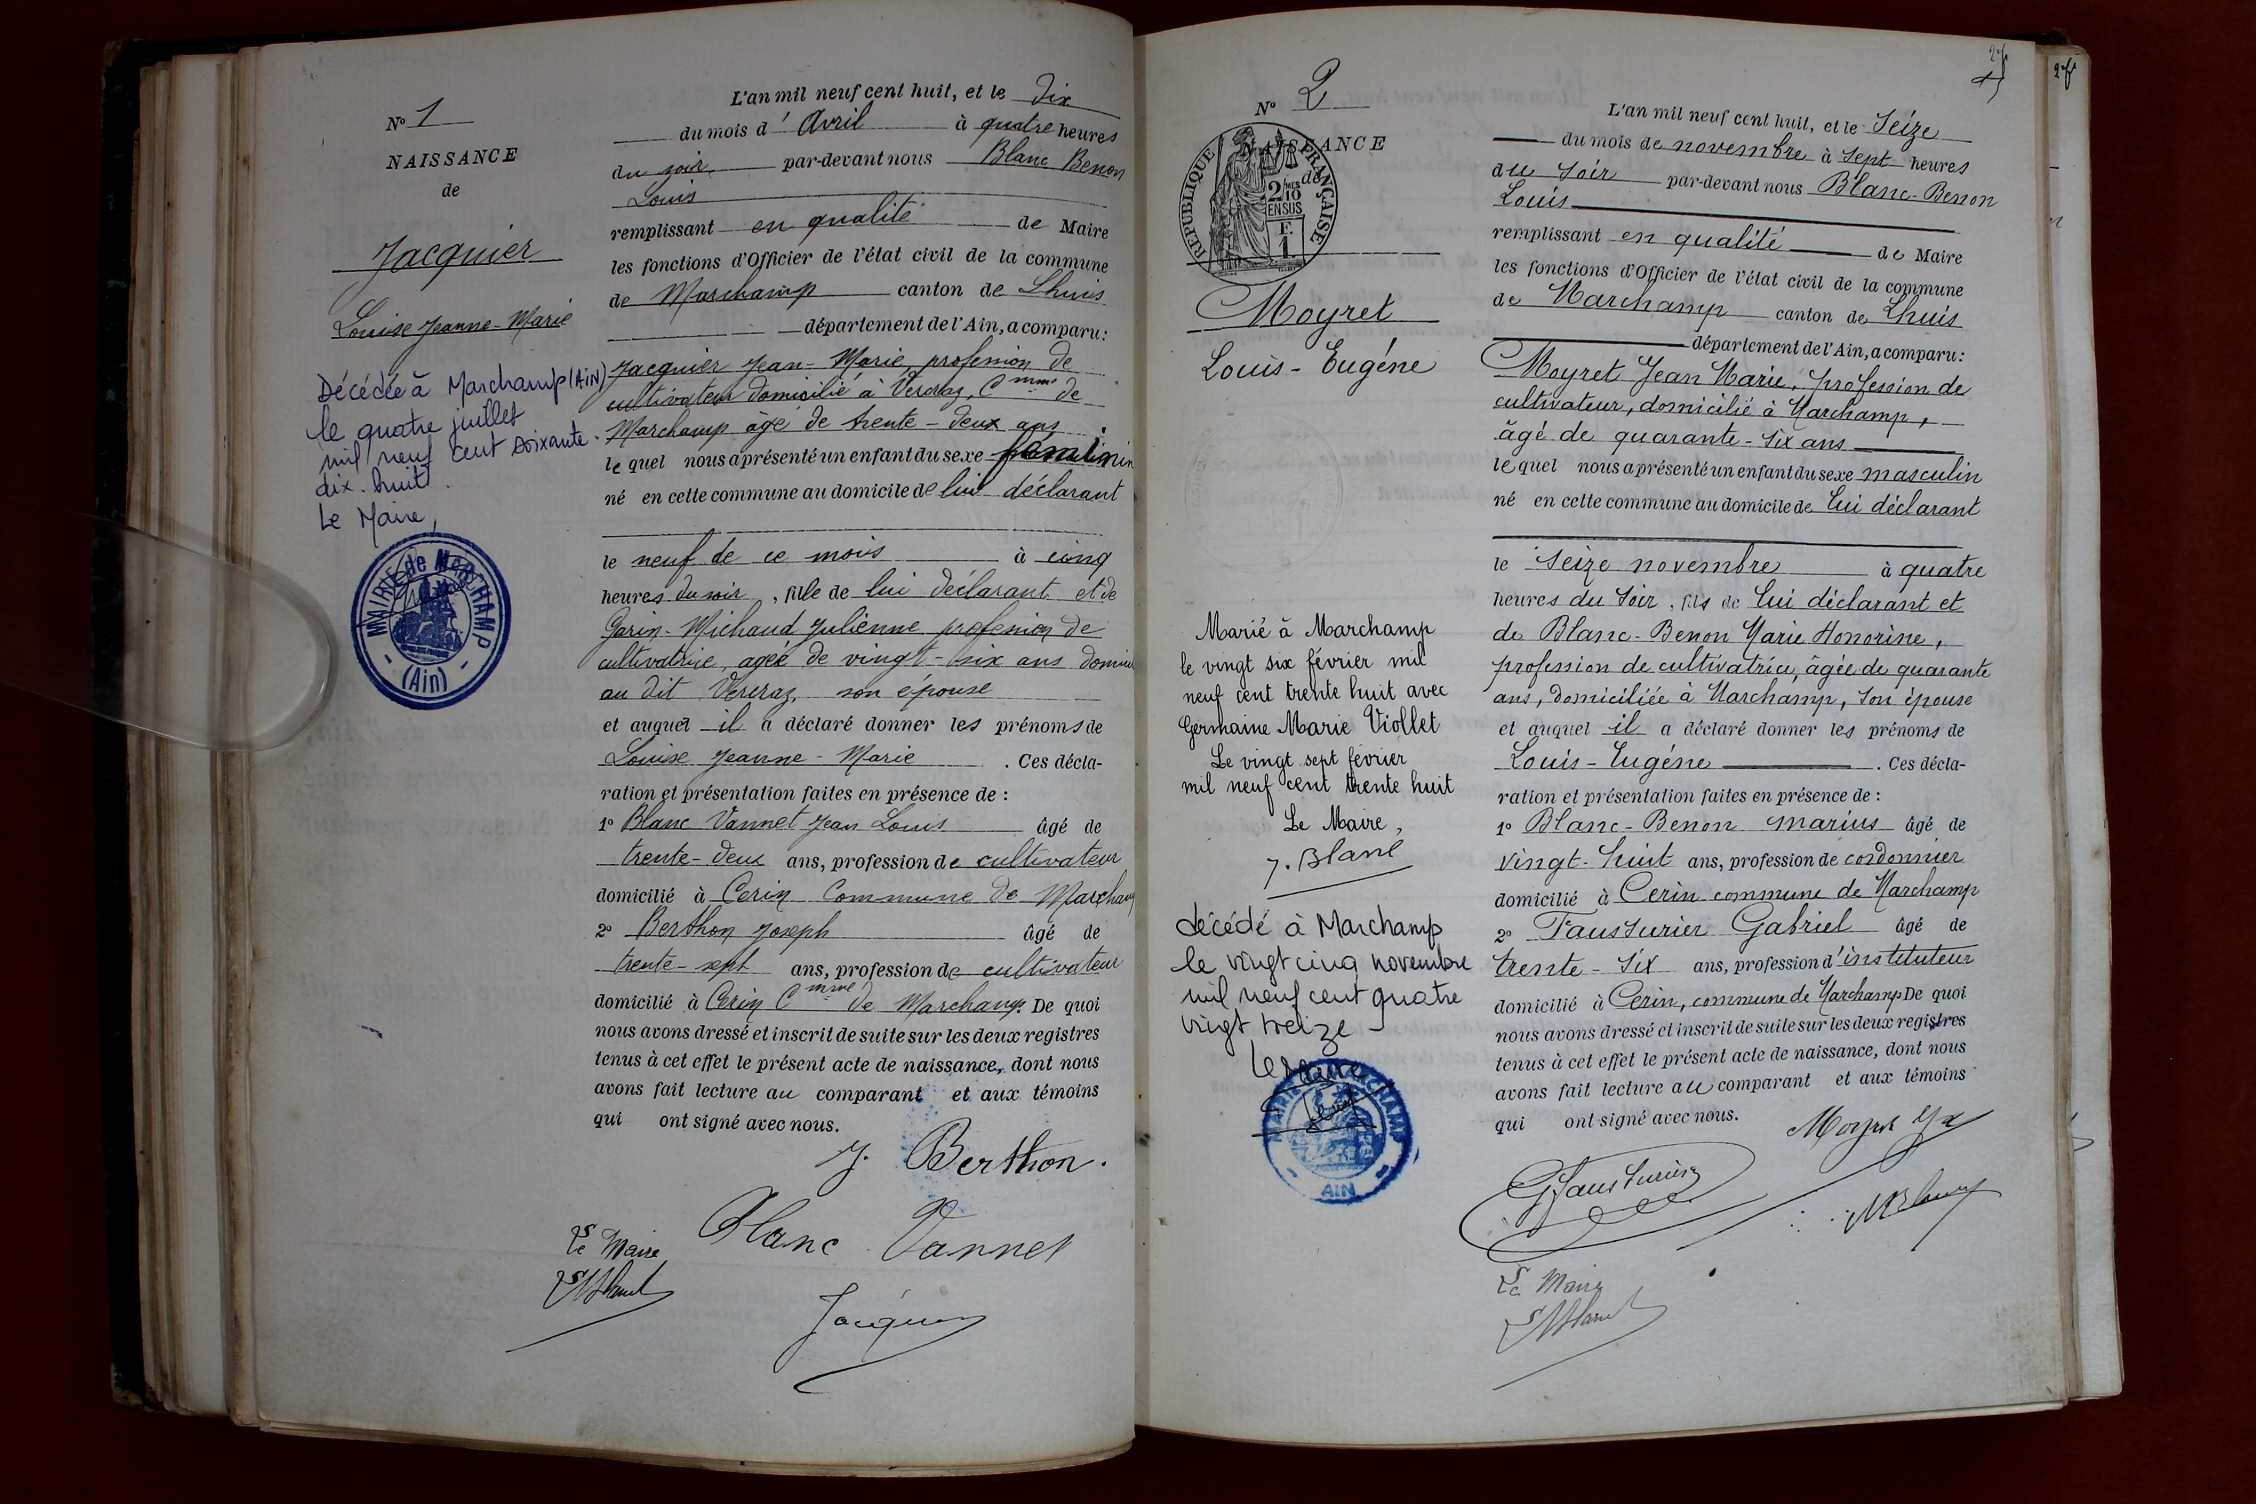 N° 1
NAISSANCE
de
Jacquier
Louise Jeanne-Marie
Décédée à Marchamp (AiN)
le quatre juillet
mil neuf cent soixante
dix-huit.
Le Maire,
MAIRIE de MARCHAMP
(Ain)
L'an mil neuf cent huit, et le dix
du mois d'Avril à quatre heures
du soir par-devant nous Blanc Benon
Louis
remplissant en qualité de Maire
les fonctions d'Officier de l'état civil de la commune
de Marchamp canton de Lhuis
département de l'Ain, a comparu:
Jacquier Jean-Marie, profession de
cultivateur domicilié à Vercraz, Cmme de
Marchamp âgé de trente-deux ans
lequel nous a présenté un enfant du sexe féminin
né en cette commune au domicile de lui déclarant
le neuf de ce mois à cinq
heures du soir, fille de lui déclarant et de
Garin-Michaud Julienne profession de
cultivatrice, agée de vingt-six ans
au dit Vercraz, son épouse
et auquel il a déclaré donner les prénoms de
Louise Jeanne-Marie. Ces décla-
ration et présentation faites en présence de :
1° Blanc Vannet Jean Louis âgé de
trente-deux ans, profession de cultivateur
domicilié à Cerin Commune de Marchamp
2° Berthon Joseph âgé de
trente-sept ans, profession de cultivateur
domicilié à Cerin Cmme de Marchamp. De quoi
nous avons dressé et inscrit de suite sur les deux registres
tenus à cet effet le présent acte de naissance, dont nous
avons fait lecture au comparant et aux témoins
qui ont signé avec nous.
J. Berthon.
Blanc Vannet
Le Maire
Jacquier
27
27
N° 2
NAISSANCE
de
RÉPUBLIQUE FRANÇAISE
2/10 MES
EN SUS
F.
1.
Moyret
Louis-Eugéne
Marié à Marchamp
le vingt six février mil
neuf cent trente huit avec
Germaine Marie Viollet
Le vingt sept février
mil neuf cent trente huit
Le Maire,
J. Blanc
décédé à Marchamp
le vingt cinq novembre
mil neuf cent quatre
vingt treize
Le Maire
MAIRIE MARCHAMP
AIN
L'an mil neuf cent huit, et le Seize
du mois de novembre à Sept heures
du Soir par-devant nous Blanc-Benon
Louis
remplissant en qualité de Maire
les fonctions d'Officier de l'état civil de la commune
de Marchamp canton de Lhuis
département de l'Ain, a comparu:
Moyret Jean Marie, profession de
cultivateur, domicilié à Marchamp,
âgé de quarante-six ans
lequel nous a présenté un enfant du sexe masculin
né en cette commune au domicile de lui déclarant
le Seize novembre à quatre
heures du Soir, fils de lui déclarant et
de Blanc-Benon Marie Honorine,
profession de cultivatrice, âgée de quarante
ans, domiciliée à Marchamp, Son épouse
et auquel il a déclaré donner les prénoms de
Louis-Eugéne. Ces décla-
ration et présentation faites en présence de :
1° Blanc-Benon Marius âgé de
vingt-huit ans, profession de cordonnier
domicilié à Cerin commune de Marchamp
2° Fausturier Gabriel âgé de
trente-six ans, profession d'instituteur
domicilié à Cerin, commune de Marchamp De quoi
nous avons dressé et inscrit de suite sur les deux registres
tenus à cet effet le présent acte de naissance, dont nous
avons fait lecture au comparant et aux témoins
qui ont signé avec nous.
Moyret
G Fausturier
Le Maire